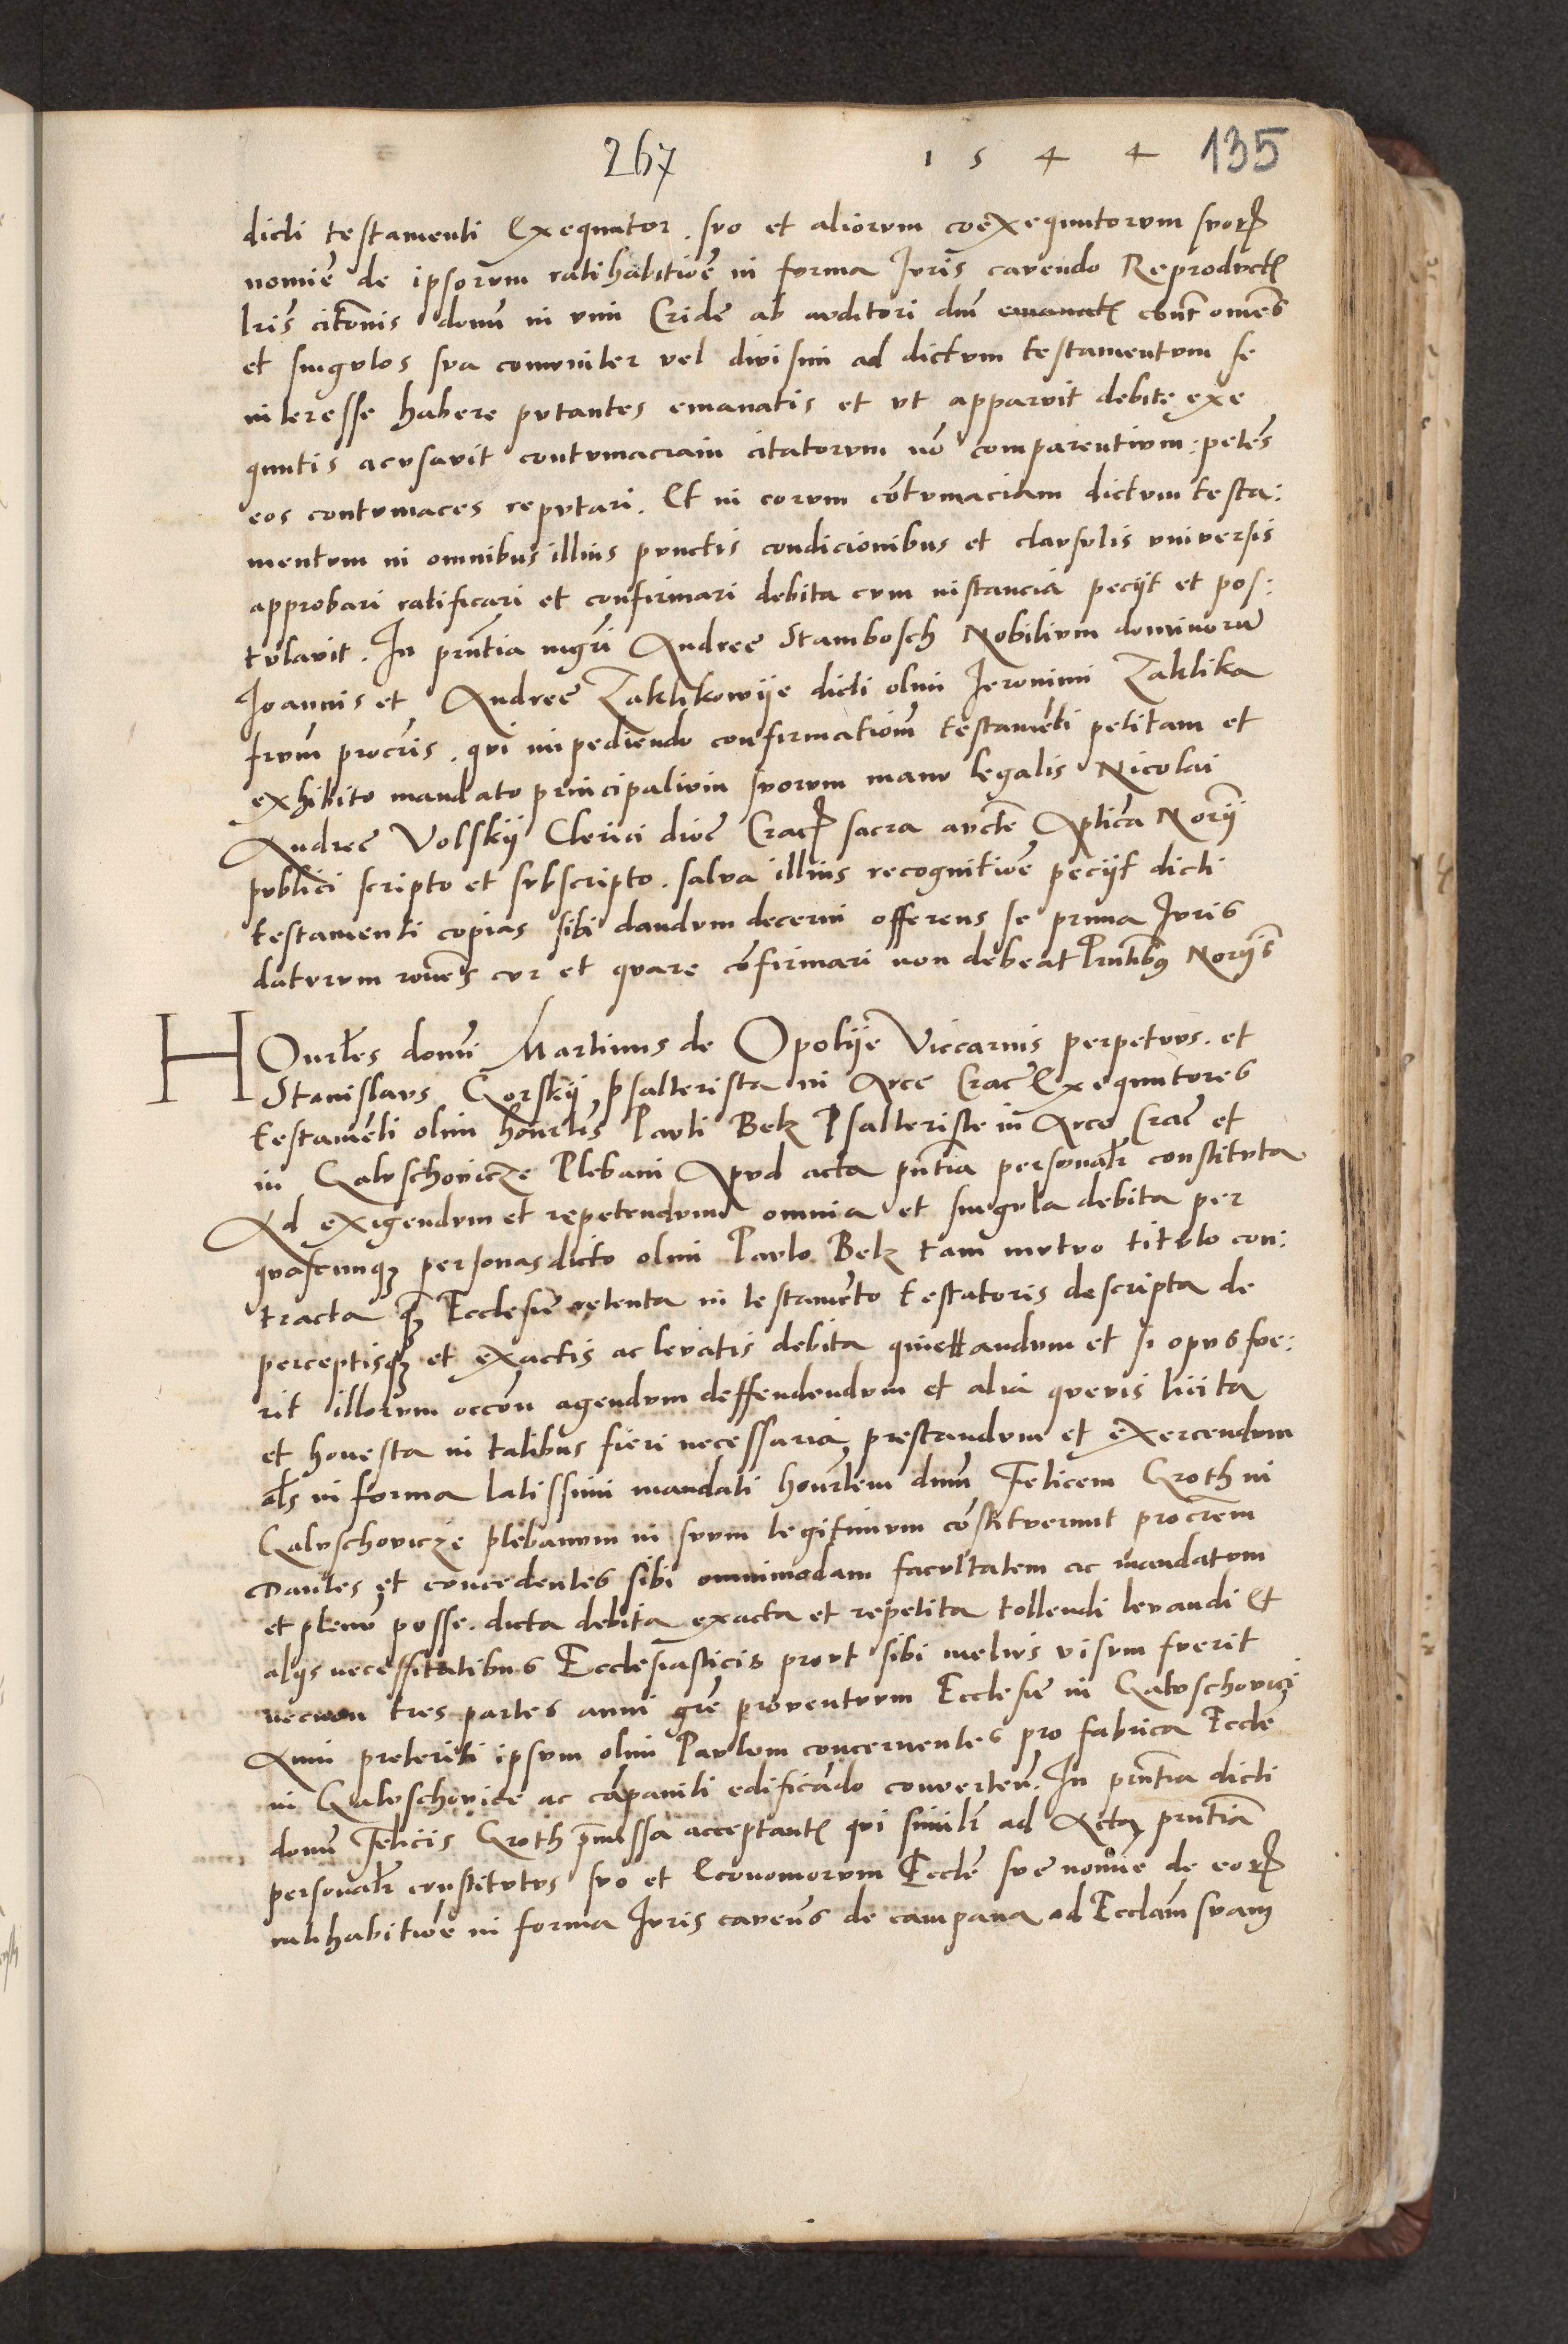 267 1 5 4 4 135
dicti testamenti Exequutor. suo et aliorum coexequutorum suorꝝ
nomīe de ipsorum ratihabitiōe in forma Iuris cavendo Reproductꝭ
lr̄is citōnis domī in vim Cride ab auditori dnī emanatꝭ cōnt omēs
et singulos sua comuniter vel divisim ad dictum testamentum se
interesse habere putantes emanatis et ut apparuit debite exe
quutis acusavit contumaciam citatorum nō comparentium: petēs
eos contumaces reputari. Et in eorum cōtumaciam dictum testa:
mentum in omnibus illius punctis condicionibus et clausulis universis
approbari ratificari et confirmari debita cum instancia peciit et pos:
tulavit. In prn̄tia mgr̄i Andree Stambosch Nobilium dominorū
Ioannis et Andree Zaklikowije dicti olim Ieronimi Zaklika
frum procr̄is. qui impediendo confirmationē testamēti petitam et
exhibito mandato principalium suorum manu legalis Nicolai
Andree Volskij Clerici dioc̄ Cracꝝ sacra auctē Aplica Norij
publici scripto et subscripto. salva illius recognitiōe peciit dicti
testamenti copias sibi dandum decerni offerens se prima Iuris
daturum rōnēs cur et quare cōfirmari non debeat Prn̄tibꝰ Norijs
HOnrbles domī Martinus de Opolije Viccarius perpetuus. et
Stanislaus Gorskij psalterista in Arce Crac̄ Exequutores
testamēti olim honrblis Pauli Bek Psalteriste in Arce Crac̄ et
in Galuschovicze Plebani Apud acta pn̄tia personalr constituta
Ad exigendum et repetendum omnia et singula debita per
quascunqꝫ personas dicto olim Paulo Bek tam mutuo titulo con:
tracta qꝫ Ecclesie retenta in testamēto testatoris descripta de
perceptisqꝫ et exactis ac levatis debita quiettandum et si opus fue:
rit illorum occōn agendum deffendendum et alia quevis licita
et honesta in talibus fieri necessaria prestandum et exercendum
als in forma latissimi mandati honrblem dnum Felicem Groth in
Galuschovicze plebanum in suum legitimum cōstituerunt procrēm
Dantes et concedentes sibi omnimodam facultatem ac mandatum
et plenū posse. dicta debita exacta et repetita tollendi levandi Et
alijs necessitatibus Ecclesiasticis prout sibi melius visum fuerit
necnon tres partes anni grē proventuum Ecclesie in Galuschovicꝫ
Anni preteriti ipsum olim Paulom concernentes pro fabrica Eccle
in Galuschovice ac cāpanili edificādo convertenꝭ. In prn̄tia dicti
domī Felicis Groth p̄missa acceptantꝭ qui similr ad Acta prn̄tia
personalr constitutus suo et Economorum Ecclē sue nomīe de eorꝝ
ratihabitiōe in forma Iuris cavens de campana ad Ecclam̄ suam